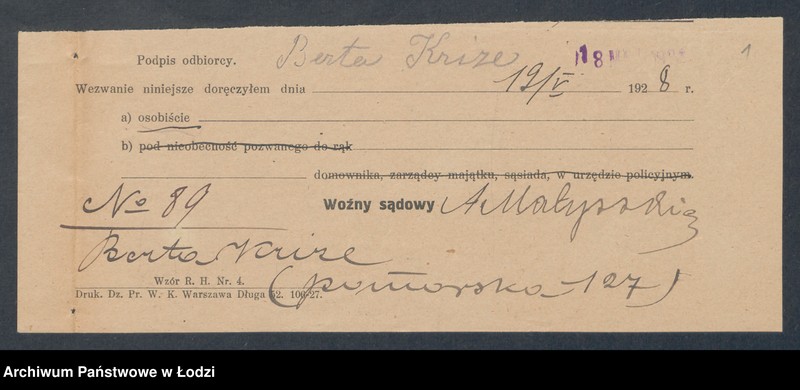 1
18
Podpis odbiorcy. Berta Krize
Wezwanie niniejsze doręczyłem dnia 19/V 1928 r.
a) osobiście
b) pod nieobecność pozwanego do rąk
domownika, zarządcy majątku, sąsiada, w urzędzie policyjnym.
No 89 Woźny sądowy A Małysski
Berta Krize
(Pomorska 127)
Wzór R. H. Nr. 4.
Druk. Dz. Pr. W. K. Warszawa Długa 52. 106-27.
Archiwum Państwowe w Łodzi